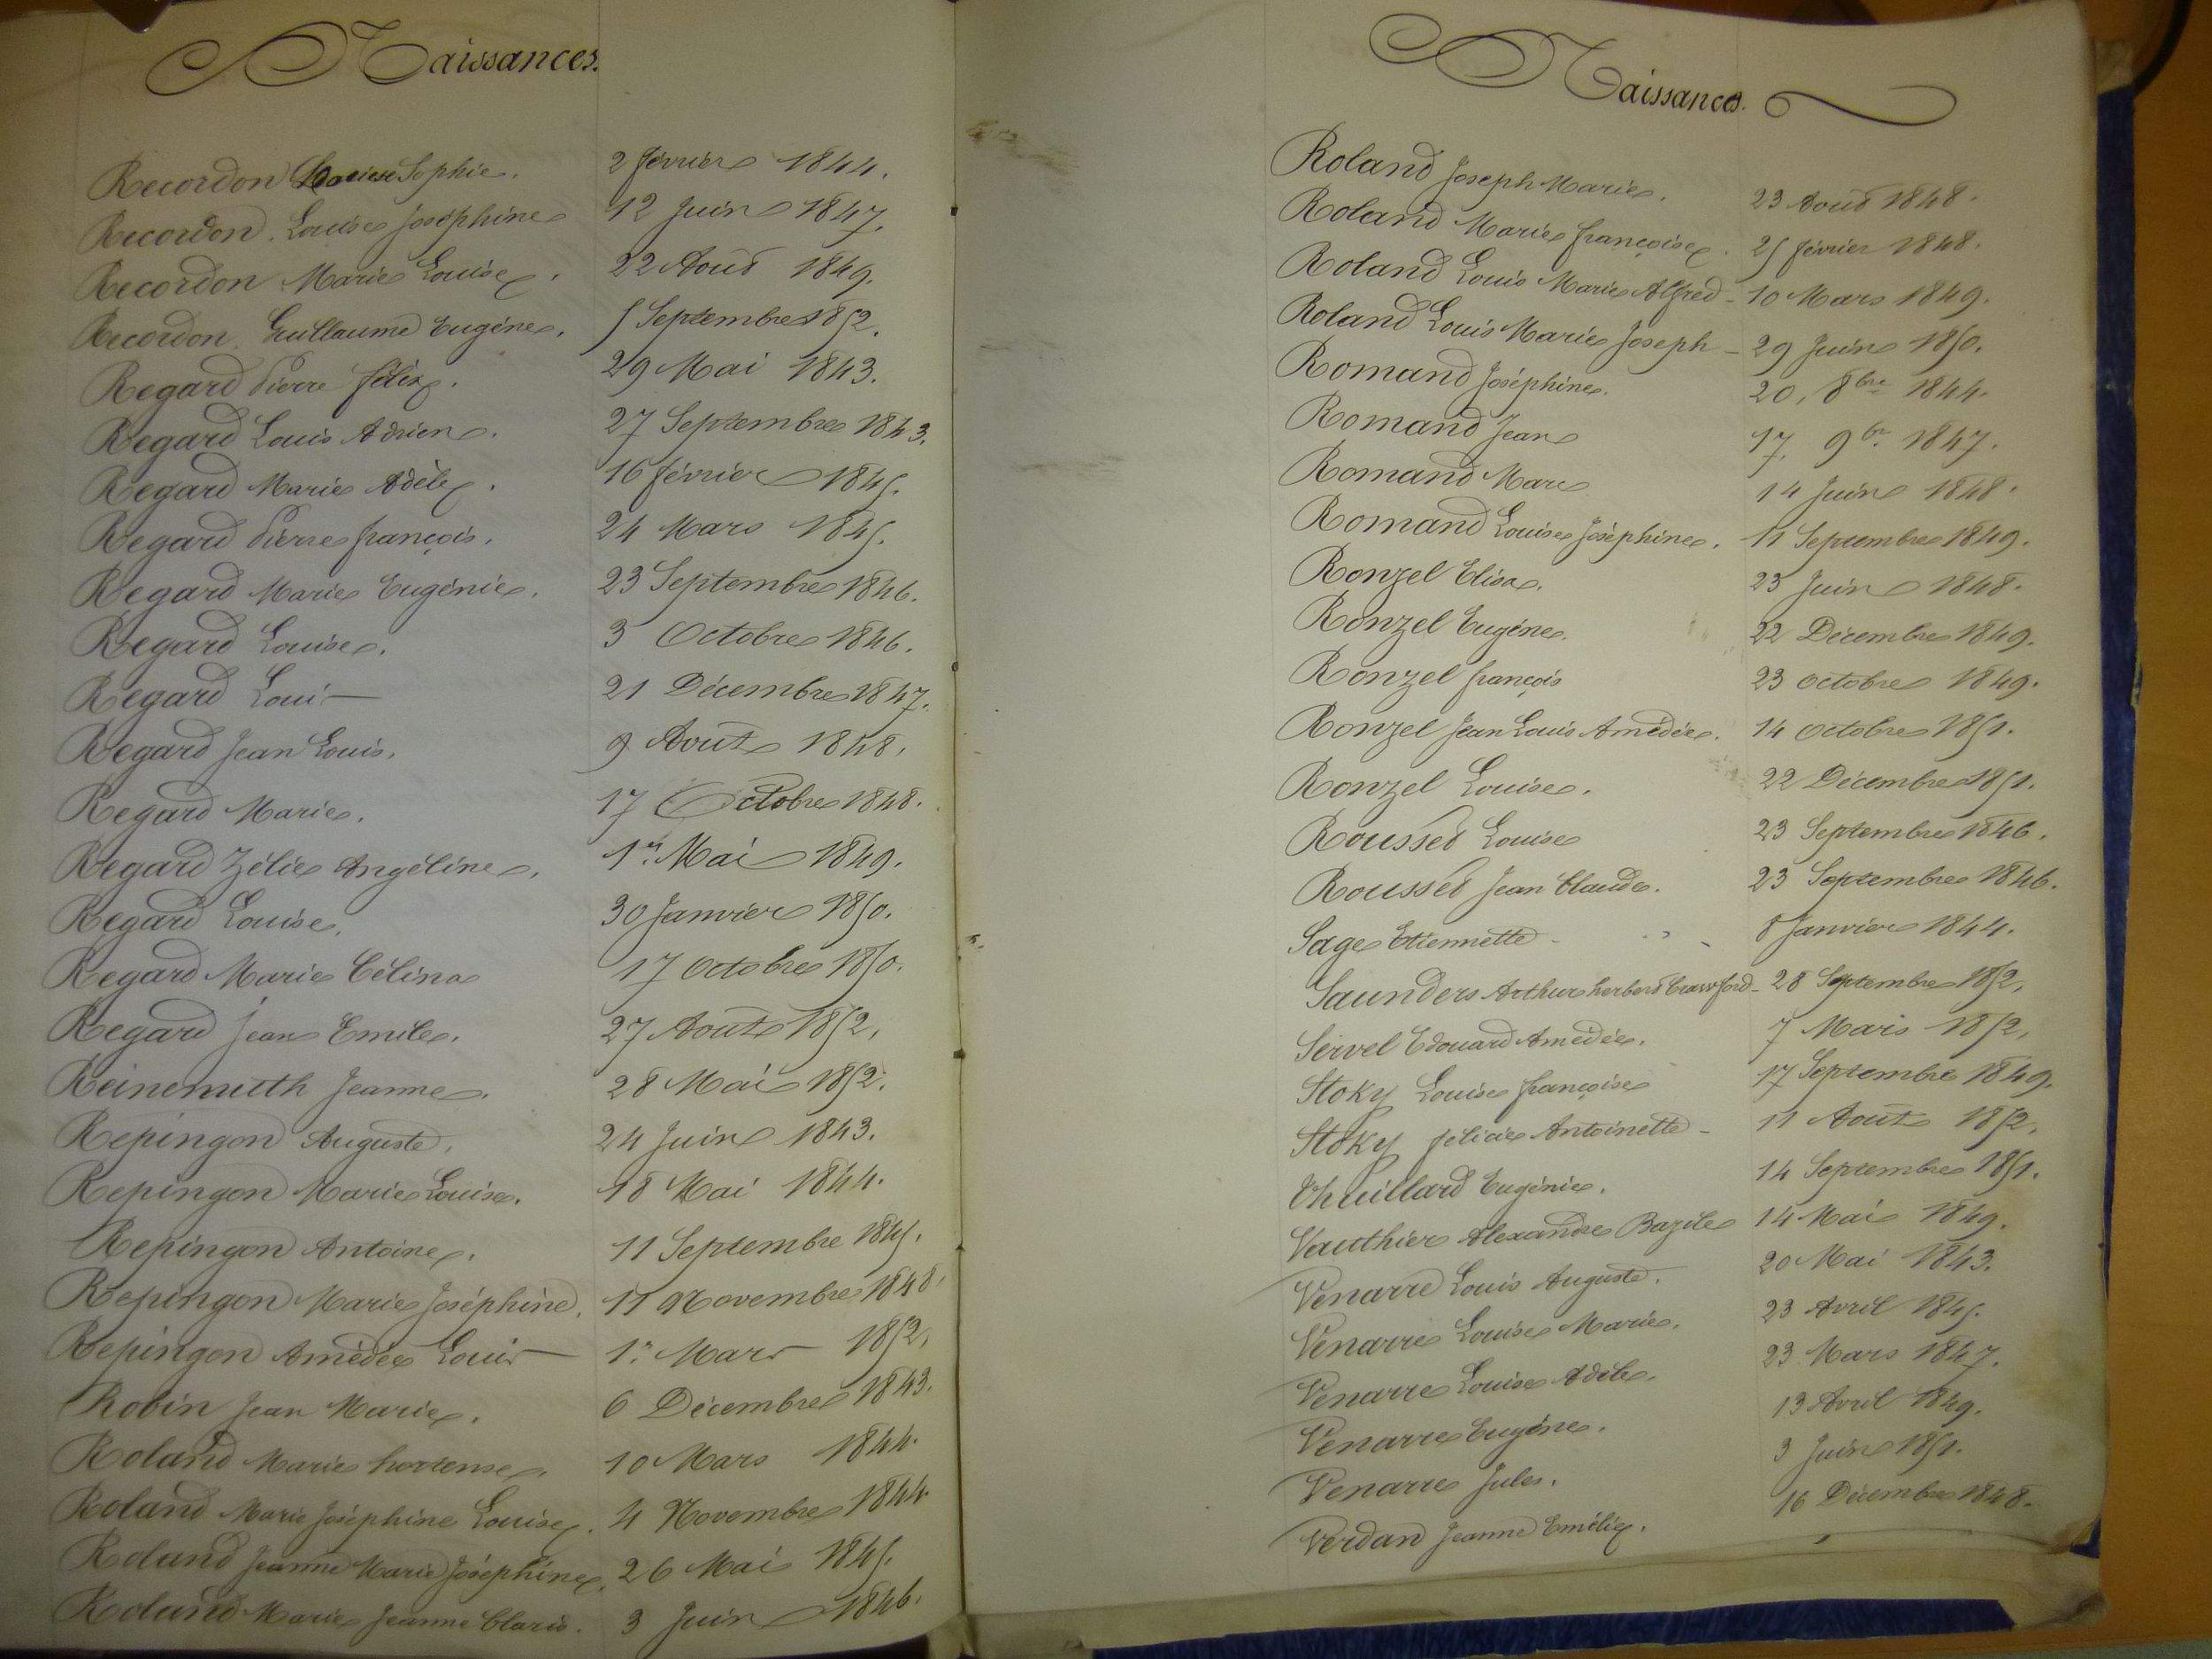 Naissances.
Recordon Sophie. 2 février 1844.
Recordon. Louise Joséphine 12 Juin 1847.
Recordon Marie Louise. 22 Aout 1849.
Recordon. Guillaume Eugène. 5 Septembre 1852.
Regard Pierre félix. 29 Mai 1843.
Regard Louis Adrien. 27 Septembre 1843.
Regard Marie Adèle. 16 février 1845.
Regard Pierre françois. 24 Mars 1845.
Regard Marie Eugénie. 23 Septembre 1846.
Regard Louise. 3 Octobre 1846.
Regard Louis 21 Décembre 1847.
Regard Jean Louis. 9 Aout 1848.
Regard Marie. 17 Octobre 1848.
Regard Zélie Angéline. 1er Mai 1849.
Regard Louise. 30 Janvier 1850.
Regard Marie Célina 17 Octobre 1850.
Regard Jean Emile. 27 Aout 1852.
Reinemuth Jeanne. 28 Mai 1852.
Repingon Auguste. 24 Juin 1843.
Repingon Marie Louise. 18 Mai 1844.
Repingon Antoine. 11 Septembre 1845.
Repingon Marie Joséphine. 11 Novembre 1848.
Repingon Amédée Louis 1er Mars 1852.
Robin Jean Marie. 6 Décembre 1843.
Roland Marie hortense. 10 Mars 1844.
Roland Marie Joséphine Louise. 4 Novembre 1844
Roland Jeanne Marie Joséphine. 26 Mai 1845.
Roland Marie Jeanne Claris. 3 Juin 1846.
Naissances.
Roland Joseph Marie. 23 Aout 1848.
Roland Marie françoise. 25 février 1848.
Roland Louis Marie Alfred - 10 Mars 1849.
Roland Louis Marie Joseph - 29 Juin 1850.
Romand Joséphine. 20, 8bre 1844.
Romand Jean 17, 9br 1847.
Romand Marc 14 Juin 1848.
Romand Louise Joséphine. 11 Septembre 1849.
Ronzel Elisa. 23 Juin 1848.
Ronzel Eugène. 22 Décembre 1849.
Ronzel françois 23 octobre 1849.
Ronzel Jean Louis Amédée. 14 octobre 1851.
Ronzel Louise. 22 Décembre 1851.
Rousset Louise 23 Septembre 1846.
Rousset Jean Claude. 23 Septembre 1846.
Sage Etiennette - 8 Janvier 1844.
Saunders Arthur herbert Crawford - 28 Septembre 1852.
Servel Edouard Amédée. 7 Mars 1852.
Stoky Louise françoise 17 Septembre 1849.
Stoky félicie Antoinette - 11 Aout 1852.
Thuillard Eugénie. 14 Septembre 1851.
Vauthier Alexandre Bazile 14 Mai 1849.
Venarre Louis Auguste. 20 Mai 1843.
Venarre Louise Marie. 23 Avril 1845.
Venarre Louise Adèle. 23 Mars 1847.
Venarre Eugène. 13 Avril 1849.
Venarre Jules. 3 Juin 1851.
Verdan Jeanne Emélie. 16 Décembre 1848.